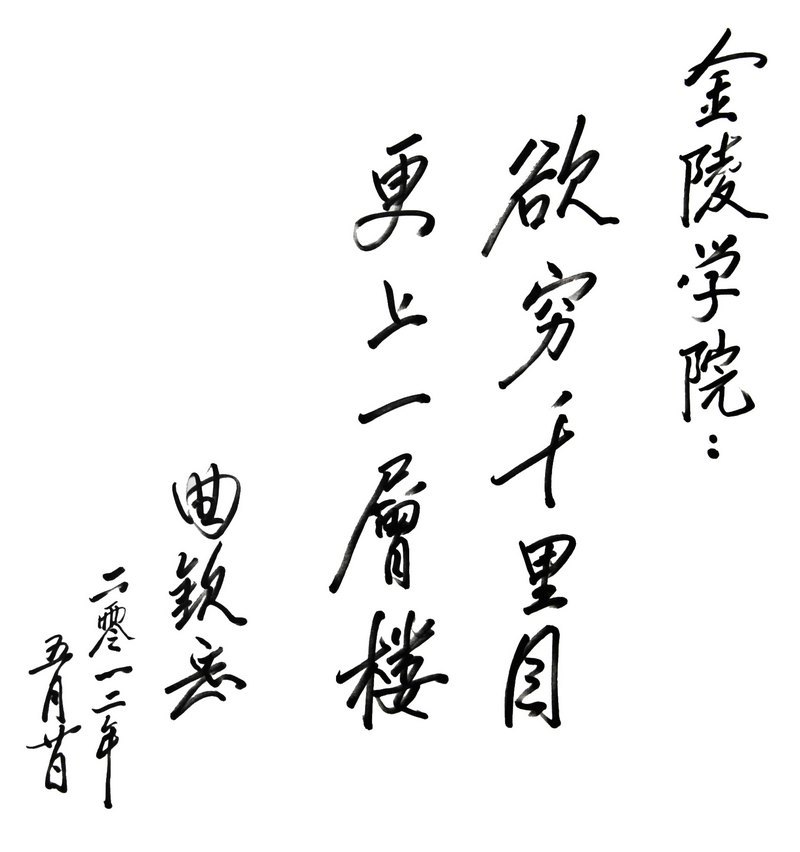 金陵学院：
欲穷千里目
更上一層楼
曲欽岳
二零一二年
五月廿日